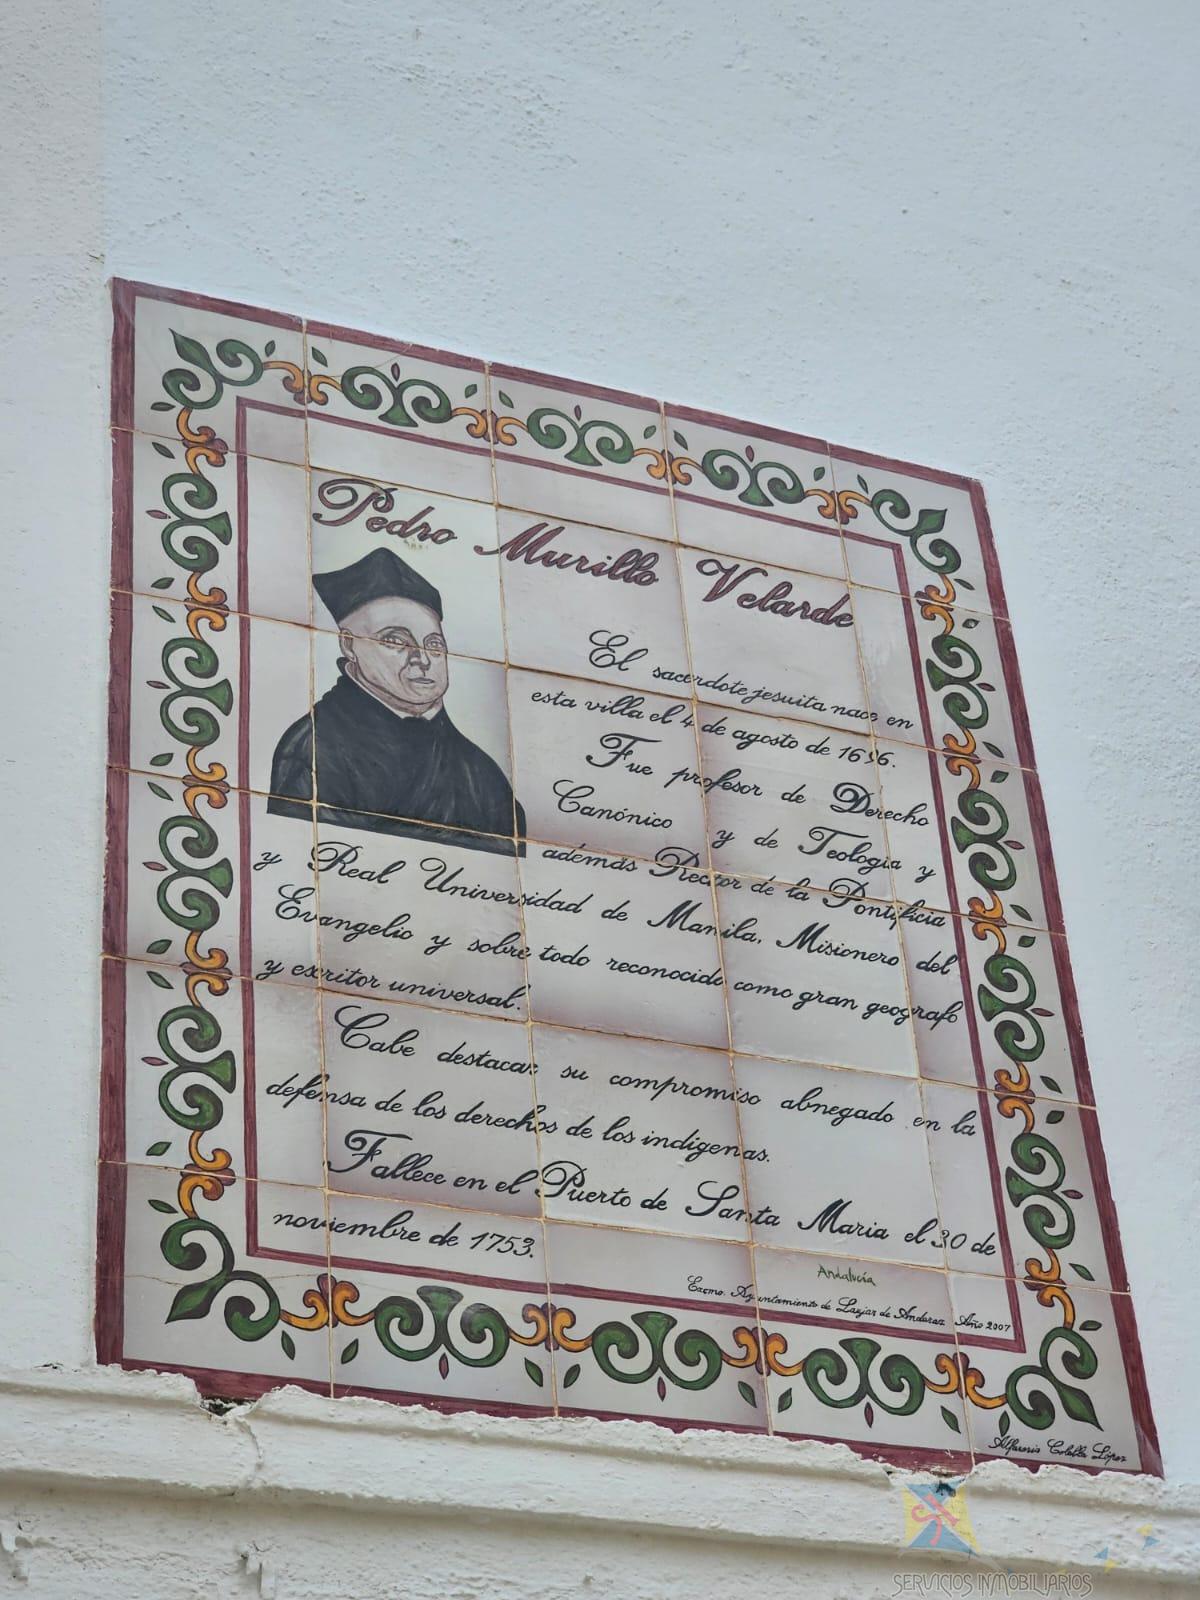 Pedro Murillo Velarde
El sacerdote jesuita nace en
esta villa el 4 de agosto de 1696.
Fue profesor de Derecho
Canónico y de Teologia y
además Rector de la Pontificia
y Real Universidad de Manila, Misionero del
Evangelio y sobre todo reconocido como gran geografo
y escritor universal.
Cabe destacar su compromiso abnegado en la
defensa de los derechos de los indigenas.
Fallece en el Puerto de Santa Maria el 30 de
noviembre de 1753.
Andalucía
Excmo. Ayuntamiento de Laujar de Andarax Año 2007
Alfarería López
SERVICIOS INMOBILIARIOS